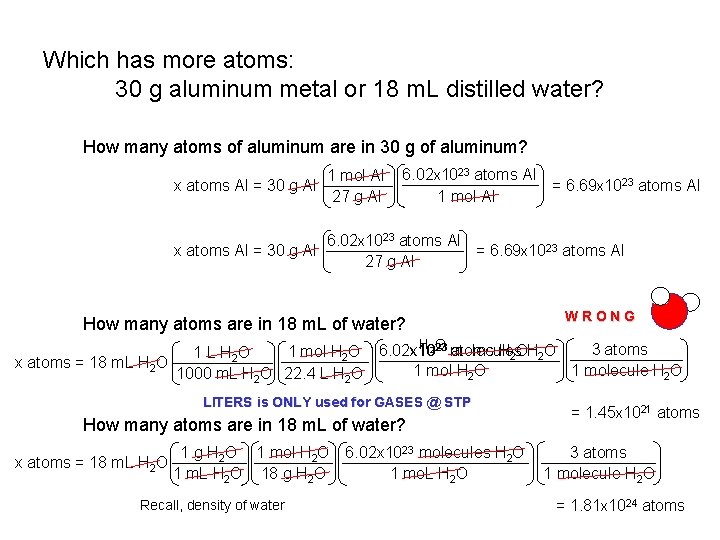 Which has more atoms:
30 g aluminum metal or 18 mL distilled water?
How many atoms of aluminum are in 30 g of aluminum?
x atoms Al = 30 g Al (1 mol Al / 27 g Al) (6.02x10²³ atoms Al / 1 mol Al) = 6.69x10²³ atoms Al
x atoms Al = 30 g Al (6.02x10²³ atoms Al / 27 g Al) = 6.69x10²³ atoms Al
WRONG
How many atoms are in 18 mL of water?
x atoms = 18 mL H₂O (1 L H₂O / 1000 mL H₂O) (1 mol H₂O / 22.4 L H₂O) (6.02x10²³ molecules H₂O / 1 mol H₂O) (3 atoms / 1 molecule H₂O)
LITERS is ONLY used for GASES @ STP
= 1.45x10²¹ atoms
How many atoms are in 18 mL of water?
x atoms = 18 mL H₂O (1 g H₂O / 1 mL H₂O) (1 mol H₂O / 18 g H₂O) (6.02x10²³ molecules H₂O / 1 moL H₂O) (3 atoms / 1 molecule H₂O)
Recall, density of water
= 1.81x10²⁴ atoms